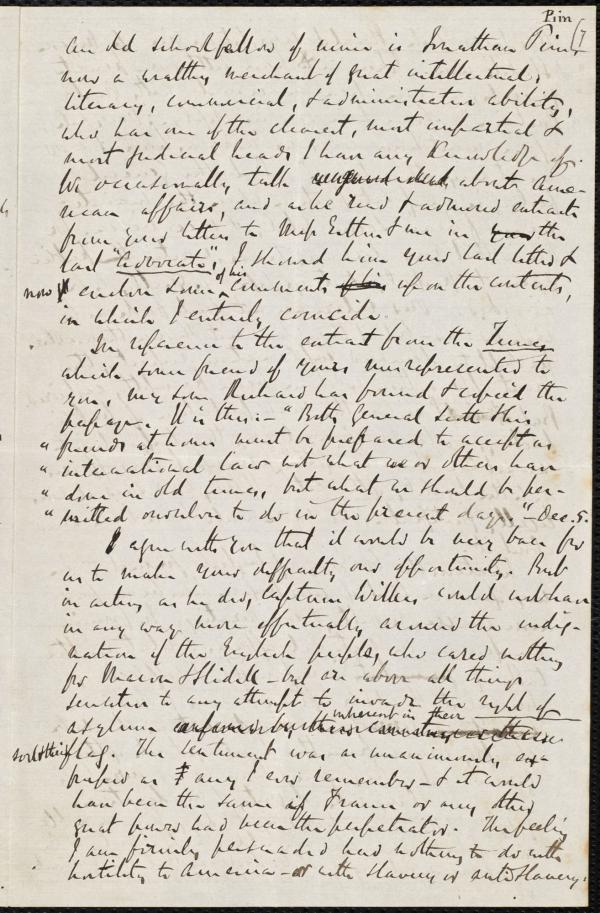 Pim (7
An old schoolfellow of mine is Jonathan Pim,
now a wealthy merchant of great intellectual,
literary, commercial, & administrative ability,
who has one of the clearest, most impartial &
most judicial heads I have any knowledge of.
We occasionally talk about Ame-
rican affairs, and as he read & admired extracts
from your letters to Miss Estlin & me in the
last "Advocate", I showed him your last letter &
now enclose some of his comments upon the contents,
in which I entirely coincide.
In reference to the extract from the Times
which some friend of yours misrepresented to
you, my son Richard has found & copied the
passage. It is this:- "Both General Scott & his
" friends at home must be prepared to accept as
" international law not what we or others have
" done in old times, but what we should be per-
" mitted ourselves to do in the present day." - Dec. 5.
I agree with you that it would be very base for
us to make your difficulty our opportunity. But
in acting as he did, Captain Wilkes could not have
in any way more effectually aroused the indig-
nation of the English people, who cared nothing
for Mason & Slidell - but are above all things
sensitive to any attempt to invade the right of
asylum inherent in their
soil & their flag. The sentiment was as unanimously ex-
pressed as any I ever remember - & it would
have been the same if France or any other
great power had been the perpetrator. The feeling
I am firmly persuaded had nothing to do with
hostility to America - or with slavery or antislavery.